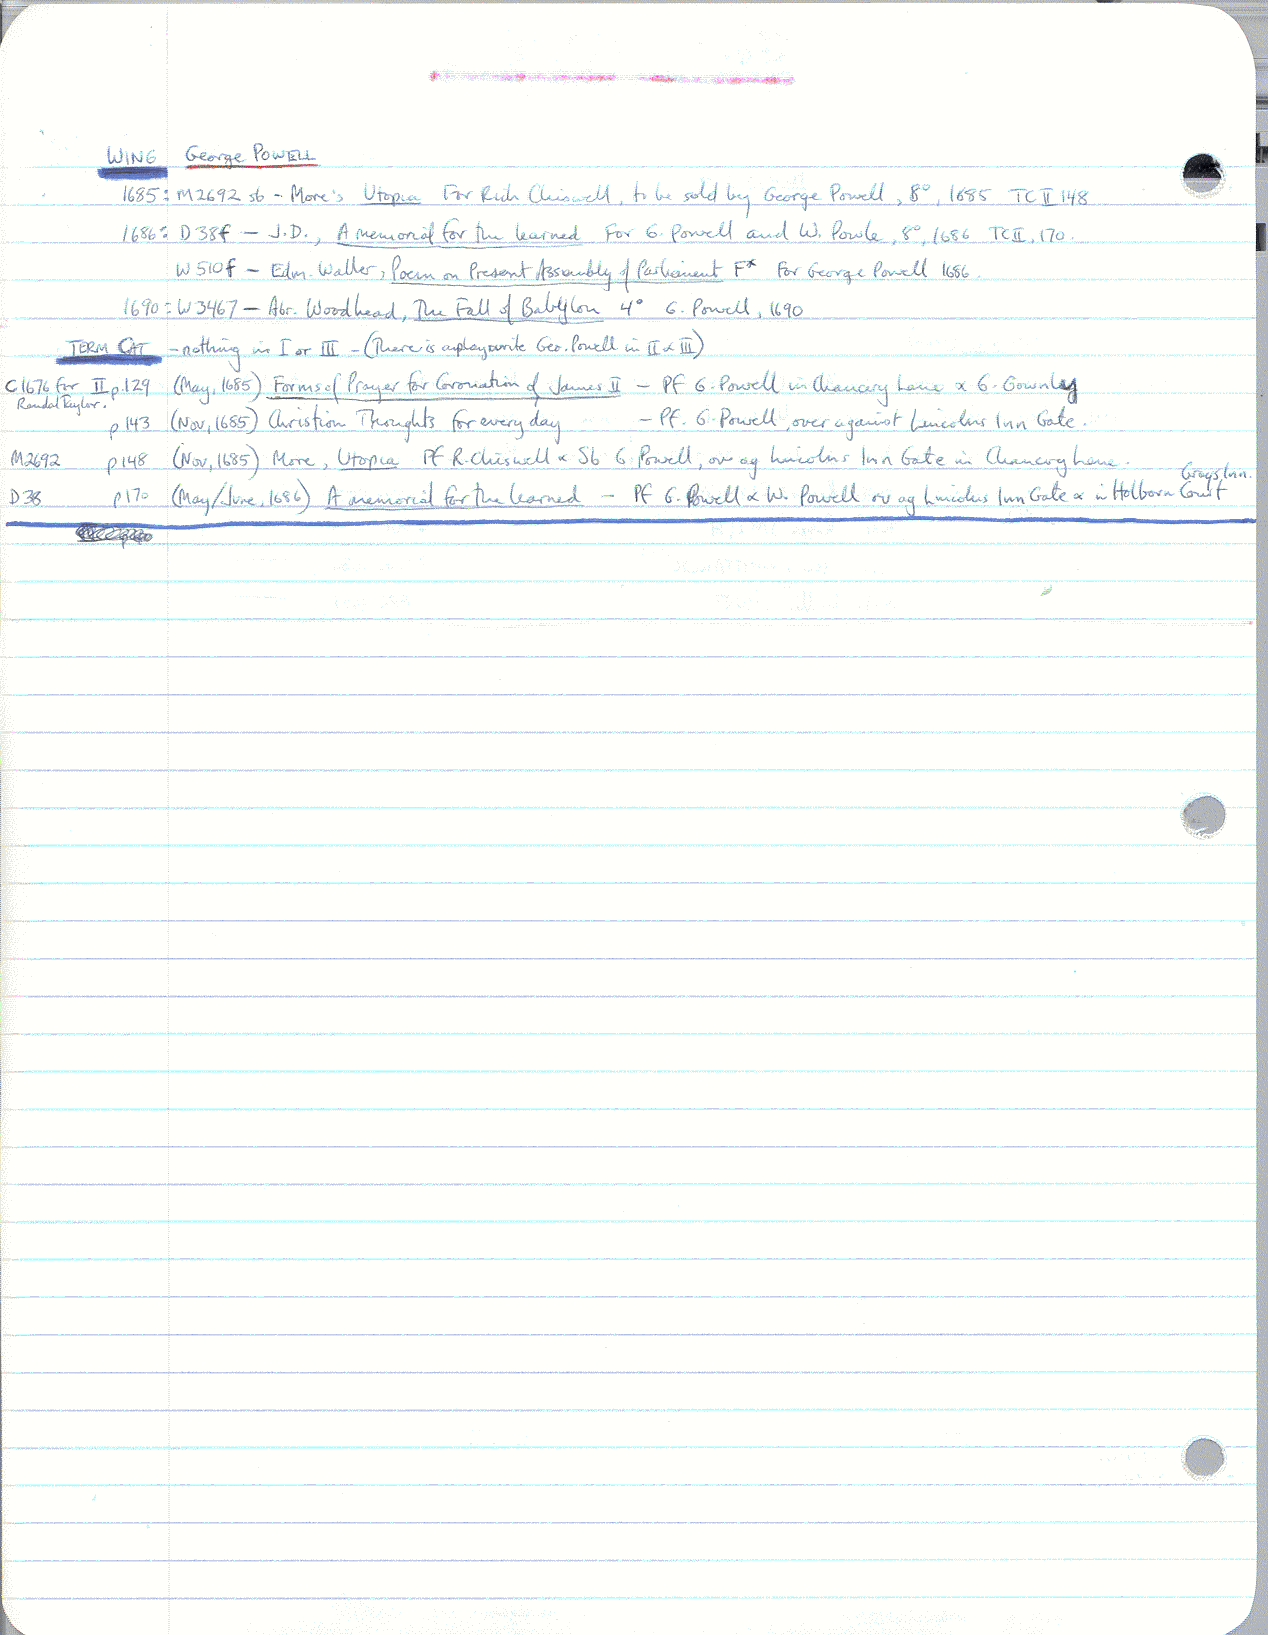 WING George POWELL
1685: M2692 sb - More's Utopia For Rich Chiswell, to be sold by George Powell, 8°, 1685 TC II 148
1686: D38f - J.D., A memorial for the learned For G. Powell and W. Powle, 8°, 1686 TC II, 170.
W510f - Edm. Waller, Poem on Present Assembly of Parliament F* For George Powell 1686.
1690: W3467 - Abr. Woodhead, The Fall of Babylon 4° G. Powell, 1690
TERM CAT - nothing in I or III - (There is a playwrite Geo. Powell in II & III)
C1676 for II p.129 (May, 1685) Forms of Prayer for Coronation of James II - PF G. Powell in Chancery Lane & G. Gownly
Randal Taylor.
p143 (Nov, 1685) Christian Thoughts for every day - PF. G. Powell, over against Lincolns Inn Gate.
M2692 p148 (Nov, 1685) More, Utopia PF R. Chiswell & Sb G Powell, ov ag Lincolns Inn Gate in Chancery Lane.
Grays Inn.
D38 p170 (May/June, 1686) A memorial for the learned - PF G. Powell & W. Powell ov ag Lincolns Inn Gate & in Holborn Court